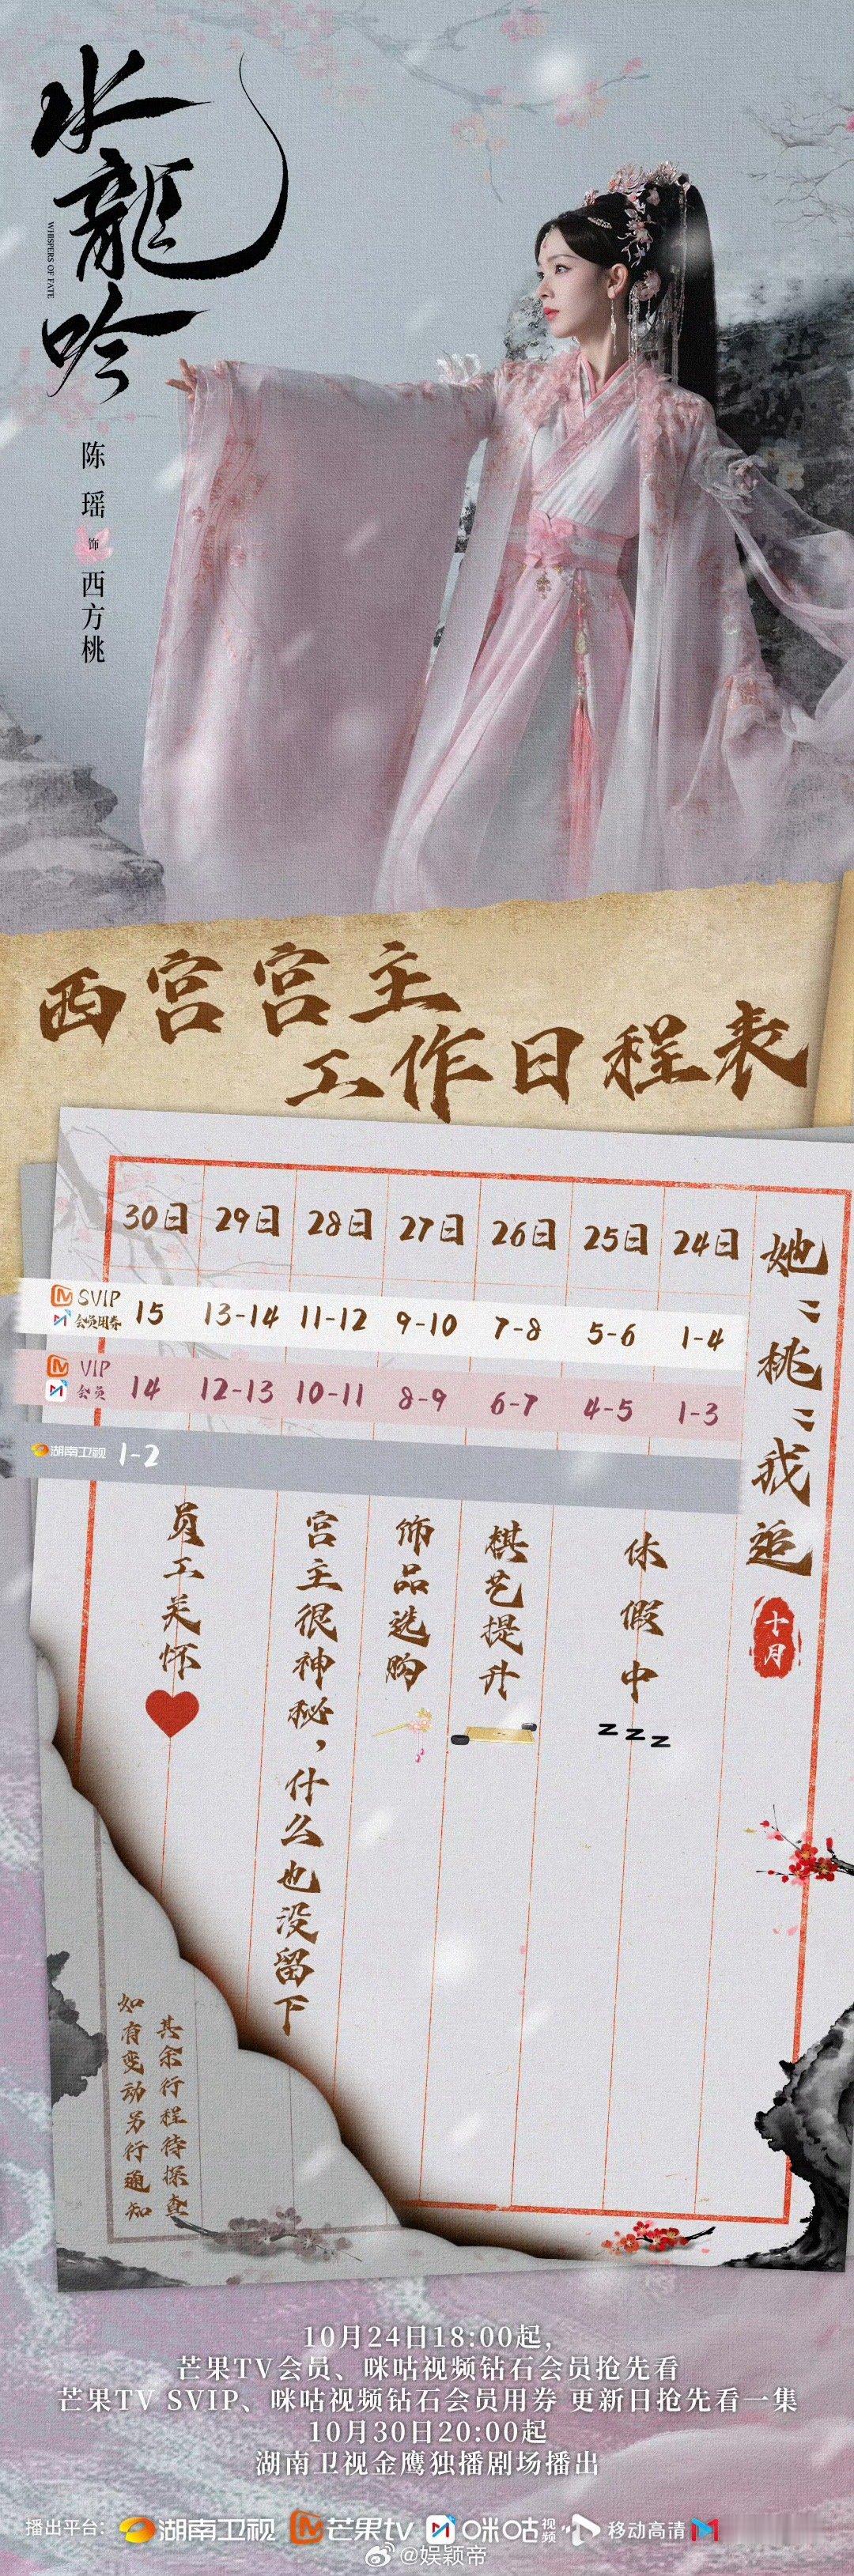 水龍吟
WHISPERS OF FATE
陈瑶
饰
西方桃
西宫宫主
工作日程表
她：桃：我追
十月
30日 29日 28日 27日 26日 25日 24日
SVIP
会员用券
15 13-14 11-12 9-10 7-8 5-6 1-4
VIP
会员
14 12-13 10-11 8-9 6-7 4-5 1-3
湖南卫视 1-2
休假中
zzz
棋艺提升
饰品选购
宫主很神秘，什么也没留下
员工关怀
其余行程待探查
如有变动另行通知
10月24日18:00起，
芒果TV会员、咪咕视频钻石会员抢先看
芒果TV SVIP、咪咕视频钻石会员用券 更新日抢先看一集
10月30日20:00起
湖南卫视金鹰独播剧场播出
播出平台: 湖南卫视 芒果tv 咪咕视频 移动高清
@娱颖帝